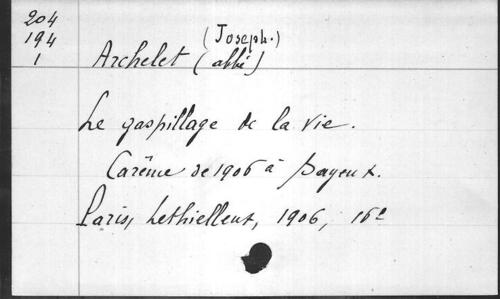 204
194
1
(Joseph.)
Archelet (abbé)
Le gaspillage de la vie.
Carême de 1906 à Bayeux.
Paris, Lethielleux, 1906, 16º